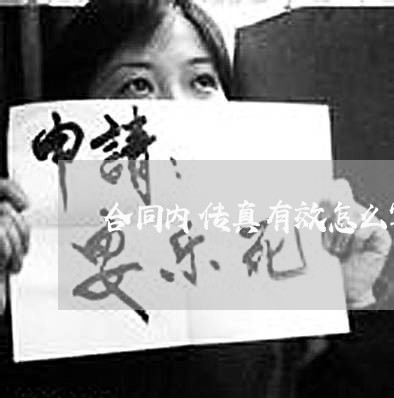 申請：
合同内传真有效怎么
乐死